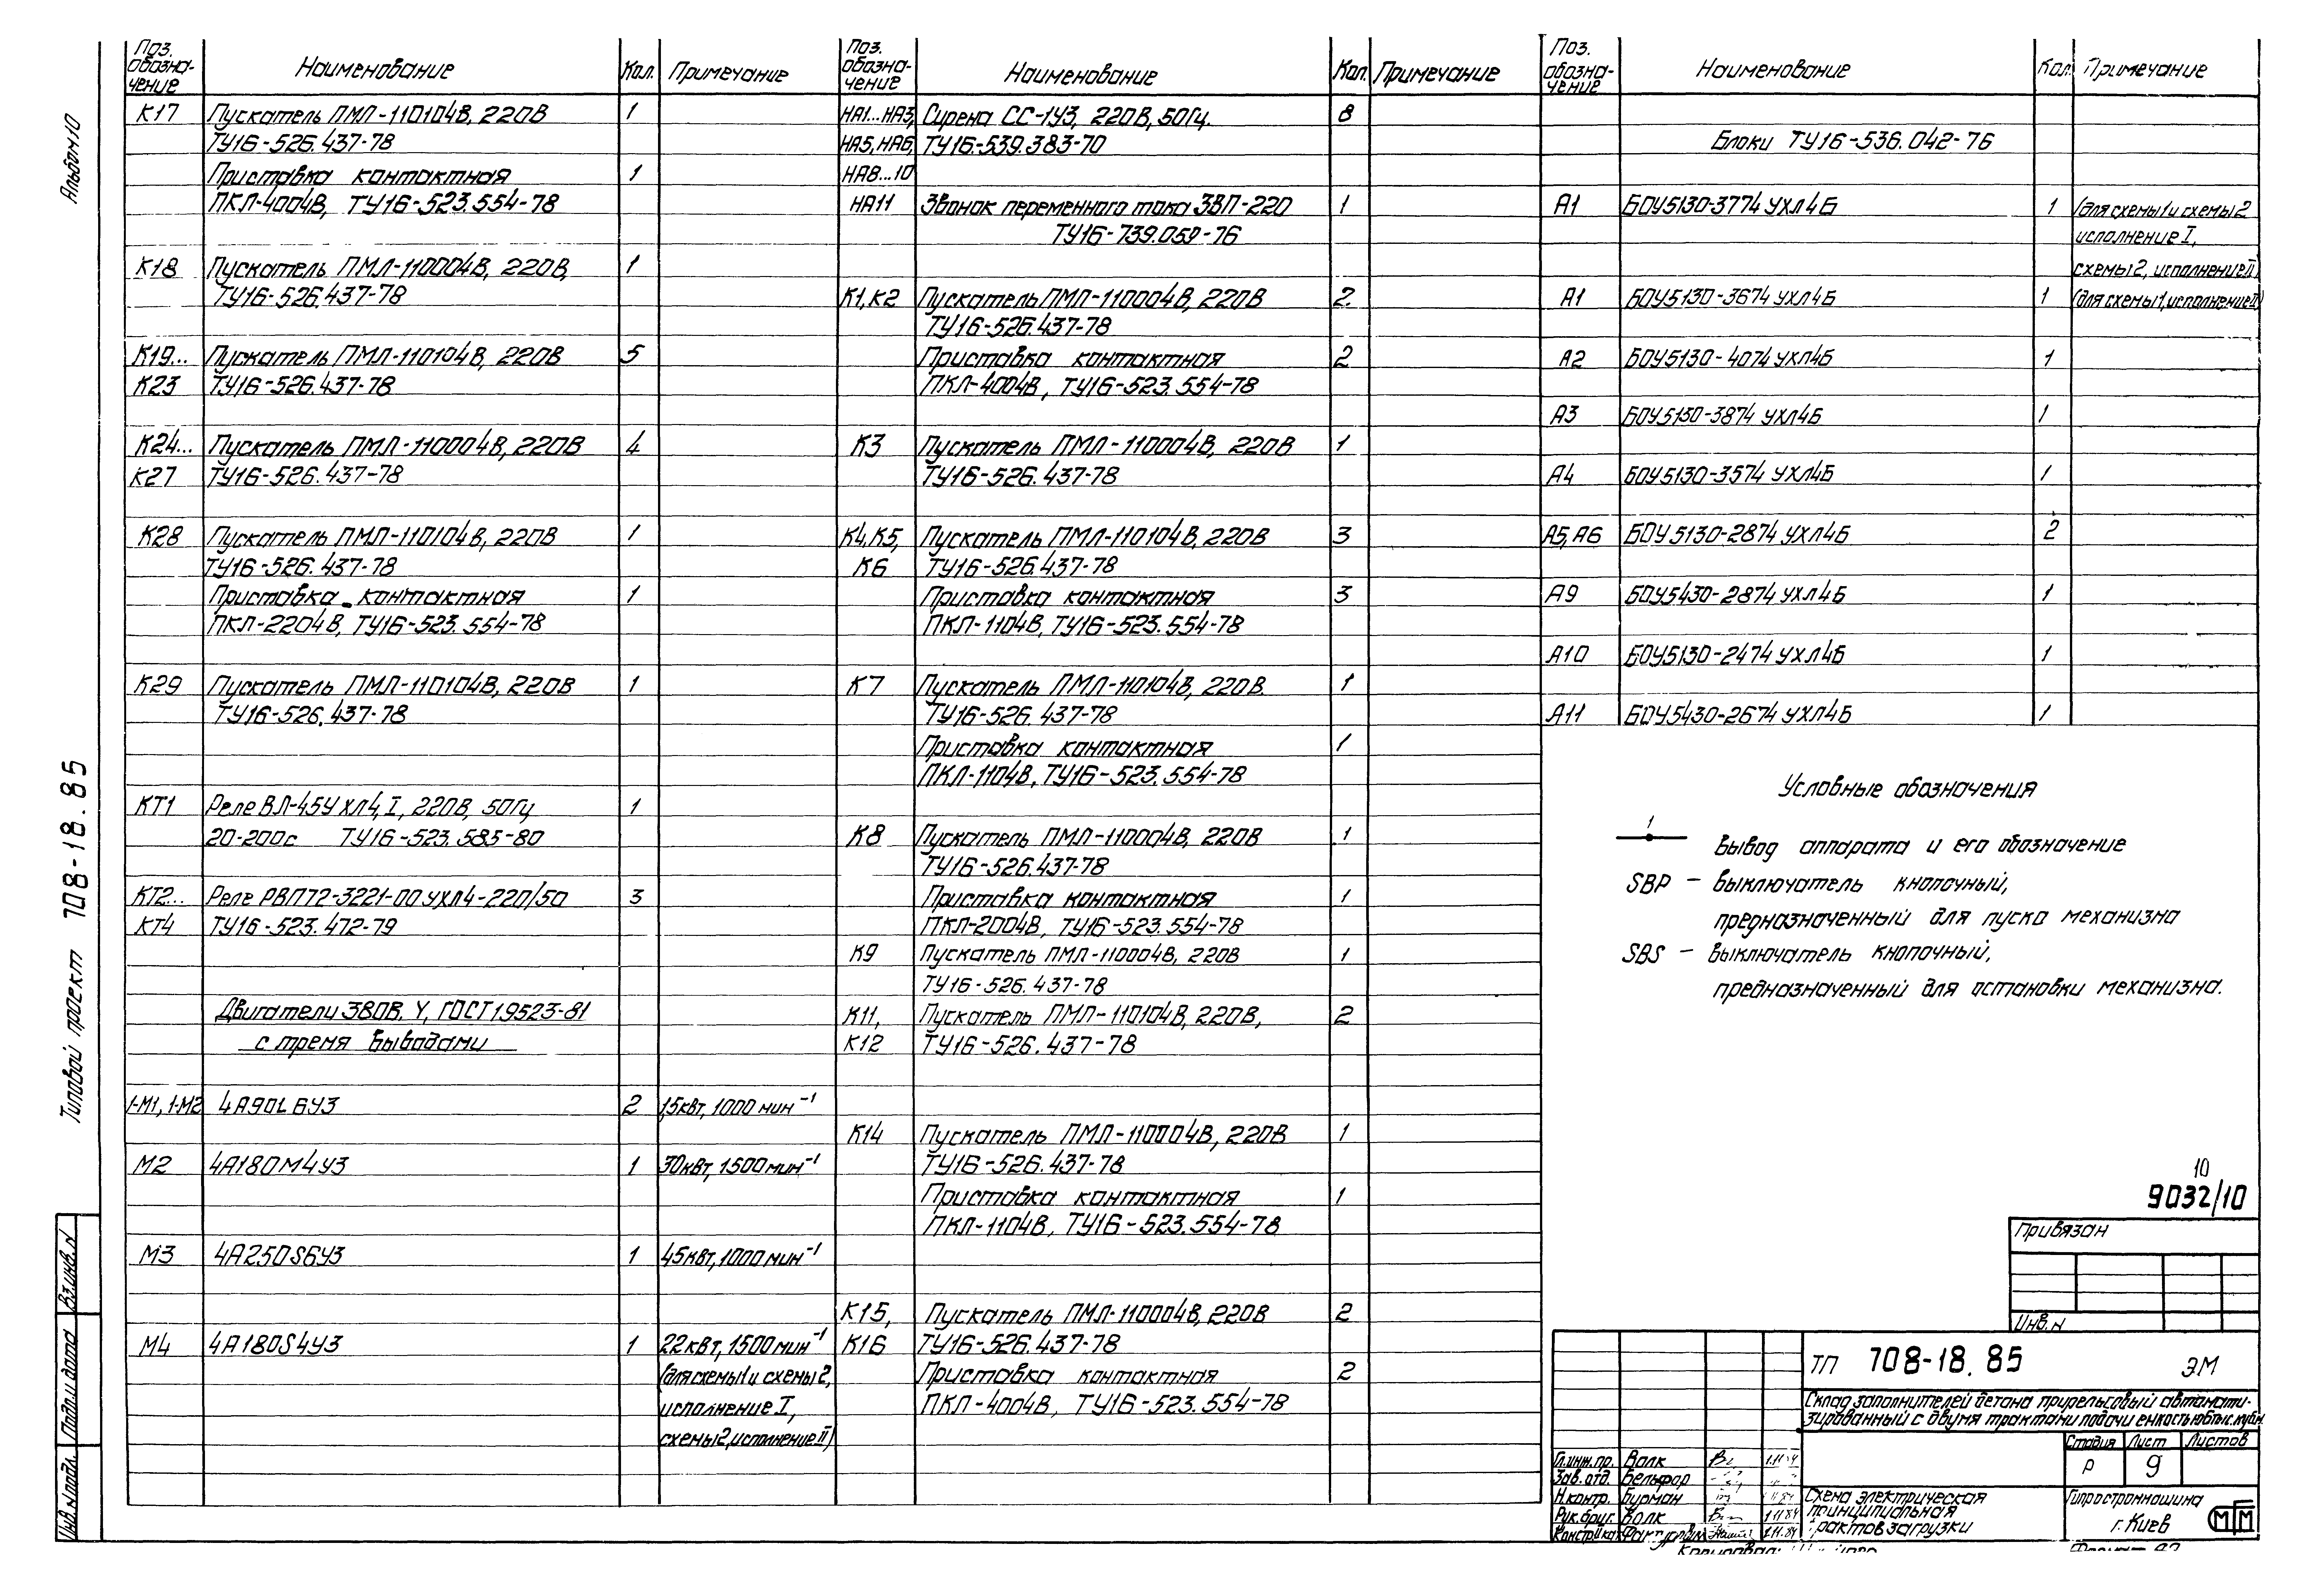 Альбом 10
Типовой проект 708-18.85
Поз. обозна-чение Наименование Кол. Примечание
К17 Пускатель ПМЛ-110104В, 220В 1
ТУ16-526.437-78
Приставка контактная 1
ПКЛ-4004В, ТУ16-523.554-78
К18 Пускатель ПМЛ-110004В, 220В, 1
ТУ16-526.437-78
К19... Пускатель ПМЛ-110104В, 220В 5
К23 ТУ16-526.437-78
К24... Пускатель ПМЛ-110004В, 220В 4
К27 ТУ16-526.437-78
К28 Пускатель ПМЛ-110104В, 220В 1
ТУ16-526.437-78
Приставка контактная 1
ПКЛ-2204В, ТУ16-523.554-78
К29 Пускатель ПМЛ-110104В, 220В 1
ТУ16-526.437-78
КТ1 Реле ВЛ-45УХЛ4, I, 220В, 50Гц 1
20-200с ТУ16-523.585-80
КТ2... Реле РВП72-3221-00УХЛ4-220/50 3
КТ4 ТУ16-523.472-79
Двигатели 380В, У, ГОСТ 19523-81
с тремя выводами
1-М1, 1-М2 4А90L6У3 2 1,5кВт, 1000 мин⁻¹
М2 4А180М4У3 1 30кВт, 1500 мин⁻¹
М3 4А250S6У3 1 45кВт, 1000 мин⁻¹
М4 4А180S4У3 1 22кВт, 1500 мин⁻¹
(для схемы 1 и схемы 2,
исполнение I,
схемы 2, исполнение II)
Поз. обозна-чение Наименование Кол. Примечание
НА1...НА3, Сирена СС-1У3, 220В, 50Гц. 8
НА5, НА6, ТУ16-539.383-70
НА8...10
НА11 Звонок переменного тока ЗВП-220 1
ТУ16-739.059-76
К1, К2 Пускатель ПМЛ-110004В, 220В 2
ТУ16-526.437-78
Приставка контактная 2
ПКЛ-4004В, ТУ16-523.554-78
К3 Пускатель ПМЛ-110004В, 220В 1
ТУ16-526.437-78
К4, К5, Пускатель ПМЛ-110104В, 220В 3
К6 ТУ16-526.437-78
Приставка контактная 3
ПКЛ-1104В, ТУ16-523.554-78
К7 Пускатель ПМЛ-110104В, 220В. 1
ТУ16-526.437-78
Приставка контактная 1
ПКЛ-1104В, ТУ16-523.554-78
К8 Пускатель ПМЛ-110004В, 220В 1
ТУ16-526.437-78
Приставка контактная 1
ПКЛ-2004В, ТУ16-523.554-78
К9 Пускатель ПМЛ-110004В, 220В 1
ТУ16-526.437-78
К11, Пускатель ПМЛ-110104В, 220В, 2
К12 ТУ16-526.437-78
К14 Пускатель ПМЛ-110004В, 220В 1
ТУ16-526.437-78
Приставка контактная 1
ПКЛ-1104В, ТУ16-523.554-78
К15, Пускатель ПМЛ-110004В, 220В 2
К16 ТУ16-526.437-78
Приставка контактная 2
ПКЛ-4004В, ТУ16-523.554-78
Поз. обозна-чение Наименование Кол. Примечание
Блоки ТУ16-536.042-76
А1 БОУ5130-3774УХЛ4Б 1 (для схемы 1 и схемы 2
исполнение I,
схемы 2, исполнение II)
А1 БОУ5130-3674УХЛ4Б 1 (для схемы 1, исполнение II)
А2 БОУ5130-4074УХЛ4Б 1
А3 БОУ5130-3874УХЛ4Б 1
А4 БОУ5130-3574УХЛ4Б 1
А5, А6 БОУ5130-2874УХЛ4Б 2
А9 БОУ5430-2874УХЛ4Б 1
А10 БОУ5130-2474УХЛ4Б 1
А11 БОУ5430-2674УХЛ4Б 1
Условные обозначения
1
Вывод аппарата и его обозначение
SBP – выключатель кнопочный,
предназначенный для пуска механизма
SBS – выключатель кнопочный,
предназначенный для остановки механизма.
10
9032/10
Привязан
Инв.н
ТП 708-18.85 ЭМ
Склад заполнителей бетона прирельсовый автомати-
зированный с двумя трактами подачи емкостью
Стадия Лист Листов
Р 9
Гл.инж.пр. Волк
Зав.отд. Бельфор
Н.контр. Бурман
Рук.бриг. Волк 1.11.84
Конструк. 1.11.84
Схема электрическая
принципиальная
трактов загрузки
Гипростроммашина
г. Киев
МГМ
Копировал:
Формат А2
Вз.инв.N
Подп.и дата
Инв.N подл.